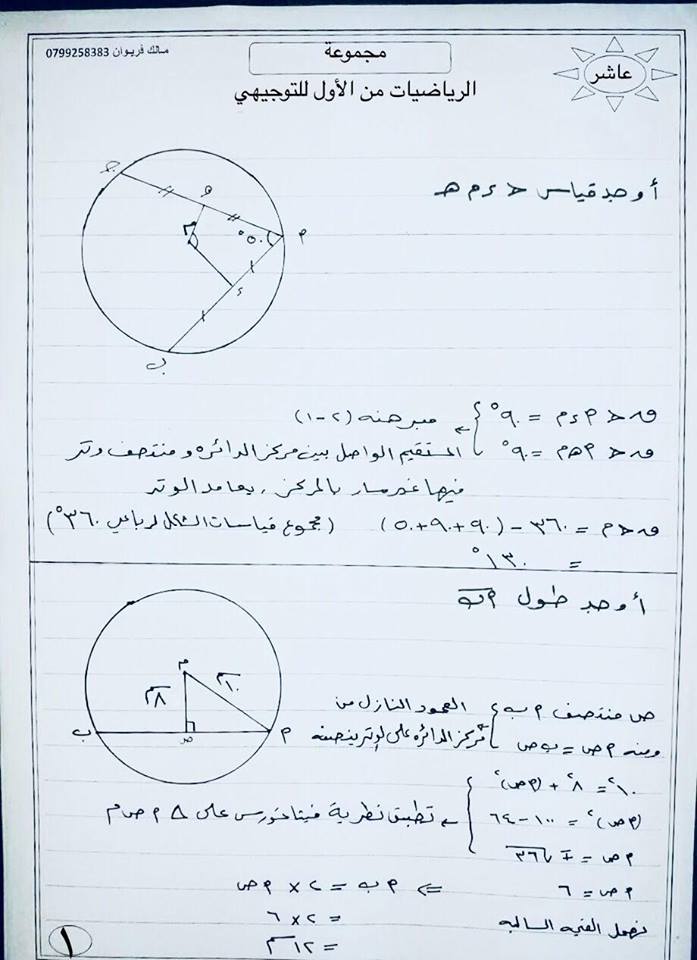 عاشر
مجموعة
مالك فريوان 0799258383
الرياضيات من الأول للتوجيهي
أوجد قياس > ء م هـ
جـ
هـ
م
٥٠°
أ
ء
ب
ق > أ ء م = ٩٠° مبرهنة (٢-١)
ق > أ هـ م = ٩٠° المستقيم الواصل بين مركز الدائرة ومنتصف وتر
فيها غير مار بالمركز، يعامد الوتر
ق > م = ٣٦٠ - (٩٠+٩٠+٥٠) (مجموع قياسات الشكل الرباعي ٣٦٠°)
= ١٣٠°
أوجد طول أب
م
١٠سم
٨سم
ب
ص
أ
ص منتصف أ ب العمود النازل من
ومنه أ ص = ب ص مركز الدائرة على الوتر ينصفه
١٠² = ٨² + (أ ص)²
(أ ص)² = ١٠٠ - ٦٤ تطبيق نظرية فيثاغورس على △ أ ص م
أ ص = ∓ √٣٦
أ ص = ٦ ⇐ أ ب = ٢ × أ ص
نهمل القيمة السالبة = ٢ × ٦
= ١٢سم
١